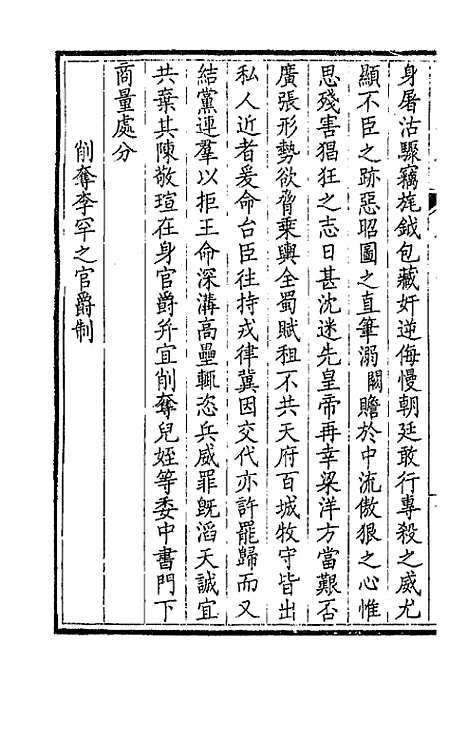 身屠沽驟竊旄鉞包藏奸逆侮慢朝廷敢行專殺之威尤
顯不臣之跡惡昭圖之直筆溺闕贍於中流傲狠之心惟
思殘害猖狂之志日甚沈迷先皇帝再幸梁洋方當艱否
廣張形勢欲脅乘輿全蜀賦租不共天府百城牧守皆出
私人近者爰命台臣往持戎律冀因交代亦許罷歸而又
結黨連羣以拒王命深溝高壘輒恣兵威罪既滔天誠宜
共棄其陳敬瑄在身官爵并宜削奪兒姪等委中書門下
商量處分
削奪李罕之官爵制